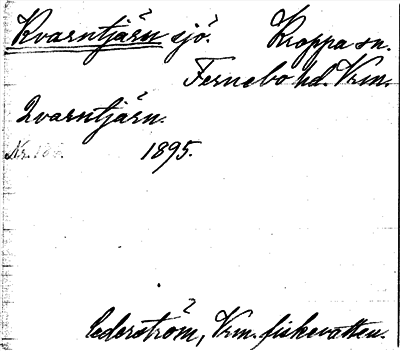 Kvarntjärn sjö. Kroppa sn.
Fernebo hd. Vrm.
Qvarntjärn.
1895.
Cederström, Vrm. fiskevatten.